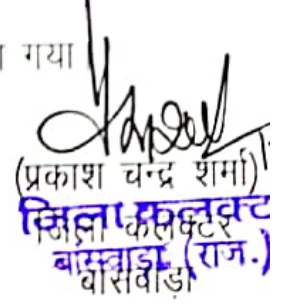 गया
(प्रकाश चन्द्र शर्मा)
जिला कलेक्टर
जिला कलक्टर
बांसवाड़ा (राज.)
बांसवाड़ा